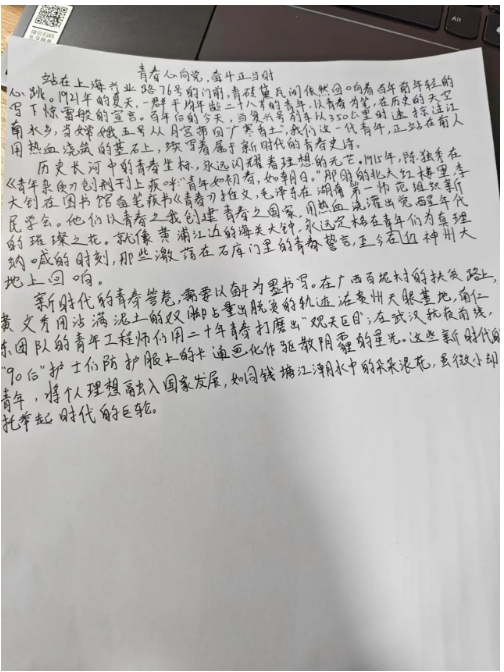 青春心向党,奋斗正当时
站在上海兴业路76号的门前,青砖黛瓦间依然回响着百年前年轻的
心跳。1921年的夏天,一群平均年龄二十八岁的青年,以青春为笔,在历史的天空
写下惊雷般的宣言。百年后的今天,当复兴号列车以350公里时速掠过江
南水乡,当嫦娥五号从月宫带回"广寒香土",我们这一代青年,正站在前人
用热血浇筑的基石上,续写着属于新时代的青春史诗。
历史长河中的青春坐标,永远闪耀着理想的光芒。1915年,陈独秀在
《青年杂志》创刊号上疾呼"青年如初春,如朝日。"那时的北大红楼里,李
大钊在图书馆奋笔疾书《青春》于位义,毛泽东在湖南第一师范组织新
民学会。他们以青春之我创建青春之国家,用热血浇灌出觉醒年代
的璀璨之花。就像黄浦江边的海关大钟,永远定格在青年们为真理
呐喊的时刻,那些激荡在石库门里的青春誓言,至今仍在神州大
地上回响。
新时代的青春答卷,需要以奋斗为墨书写。在广西百坭村的扶贫路上,
黄文秀用沾满泥土的双脚丈量出脱贫的轨迹;在贵州天眼基地,南仁
东团队的青年工程师们用二十年青春打磨出"观天巨目";在武汉抗疫前线,
"90后"护士们防护服上的卡通画化作驱散阴霾的星光。这些新时代的
青年,将个人理想融入国家发展,如同钱塘江潮水中的朵朵浪花,虽微小却
托举起时代的巨轮。